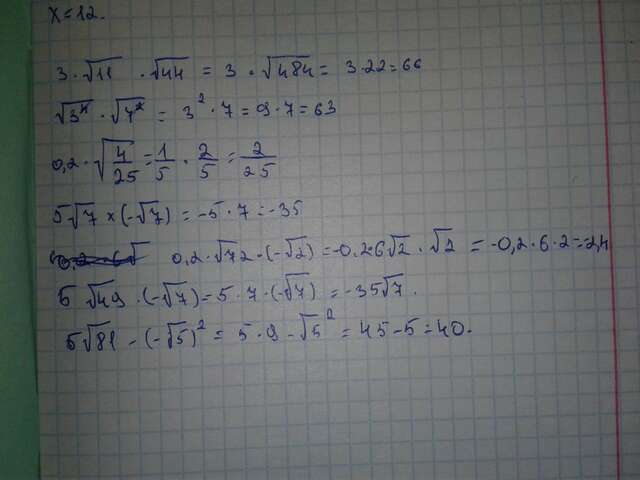 x=12.
3·√11 · √44 = 3·√484 = 3·22=66
√3⁴ · √7² = 3² · 7 = 9·7=63
0,2 · √4/25 = 1/5 · 2/5 = 2/25
5√7 × (-√7) = -5·7 = -35
0,2·√72 · (-√2) = -0,2·6√2 · √2 = -0,2·6·2=-2,4
5 √49 · (-√7) = 5·7·(-√7) = -35√7.
5√81 - (-√5)² = 5·9 - √5² = 45-5=40.